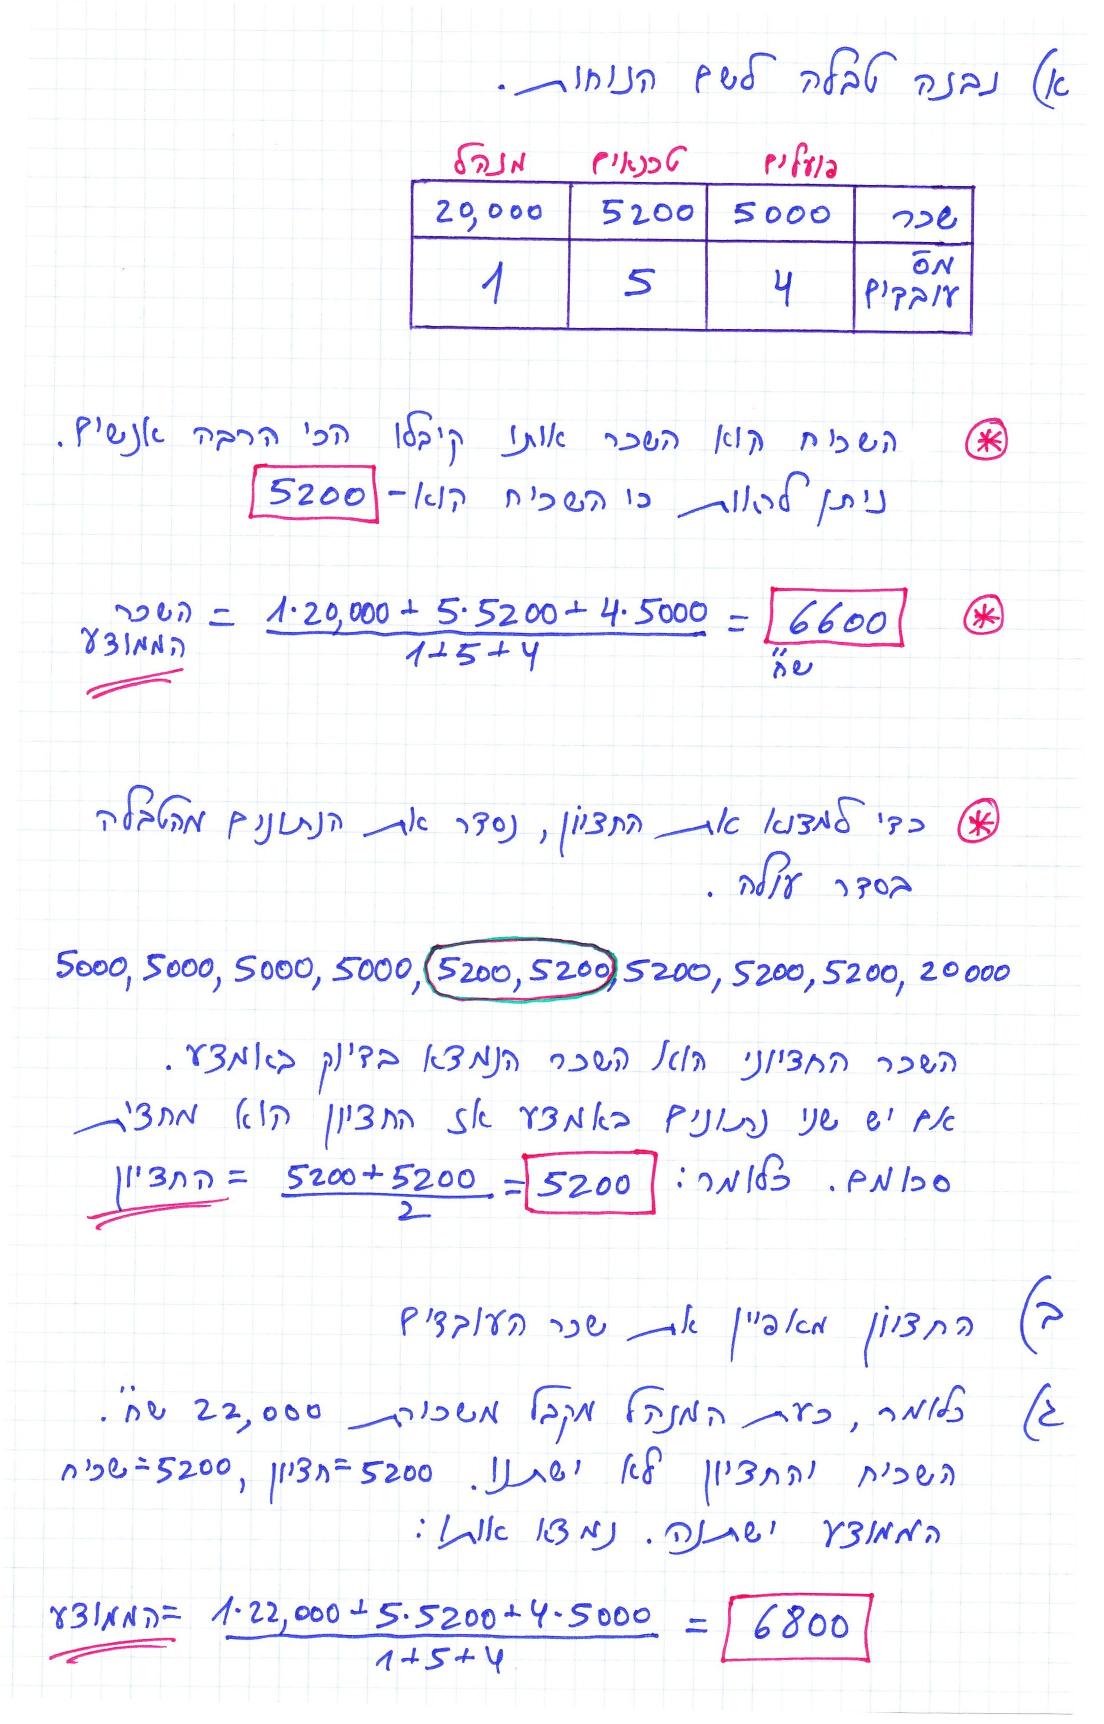 א) נבנה טבלה לשם הנוחות.
פועלים טכנאים מנהל
שכר 5000 5200 20,000
מס' עובדים 4 5 1
השכיח הוא השכר אותו קיבלו הכי הרבה אנשים.
ניתן לראות כי השכיח הוא- 5200
השכר הממוצע = (1·20,000 + 5·5200 + 4·5000) / (1+5+4) = 6600 ש"ח
כדי למצוא את החציון, נסדר את הנתונים מהטבלה
בסדר עולה.
5000, 5000, 5000, 5000, 5200, 5200, 5200, 5200, 5200, 20000
השכר החציוני הוא השכר הנמצא בדיוק באמצע.
אם יש שני נתונים באמצע אז החציון הוא מחצית
סכומם. כלומר: החציון = (5200+5200) / 2 = 5200
ב) החציון מאפיין את שכר העובדים
ג) כלומר, כעת המנהל מקבל משכורת 22,000 ש"ח.
השכיח והחציון לא ישתנו. 5200=חציון, 5200=שכיח
הממוצע ישתנה. נמצא אותו:
הממוצע= (1·22,000 + 5·5200 + 4·5000) / (1+5+4) = 6800